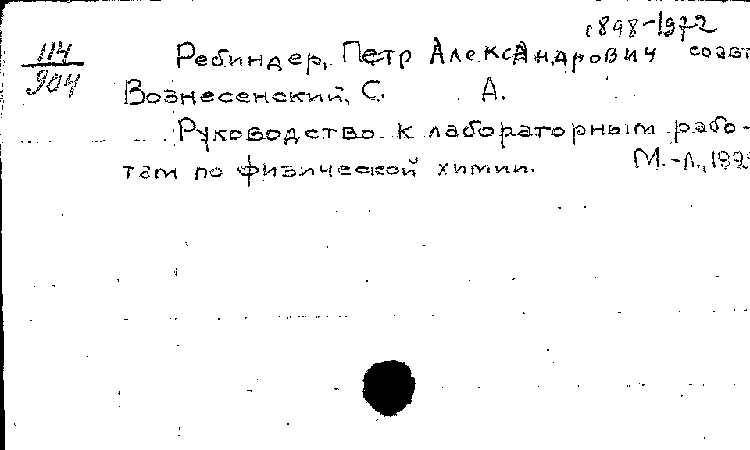 1898-1972
114
904
Ребиндер, Петр Александрович соавт
Вознесенский, С. А.
Руководство к лабораторным рабо-
там по физической химии. М.-Л.,